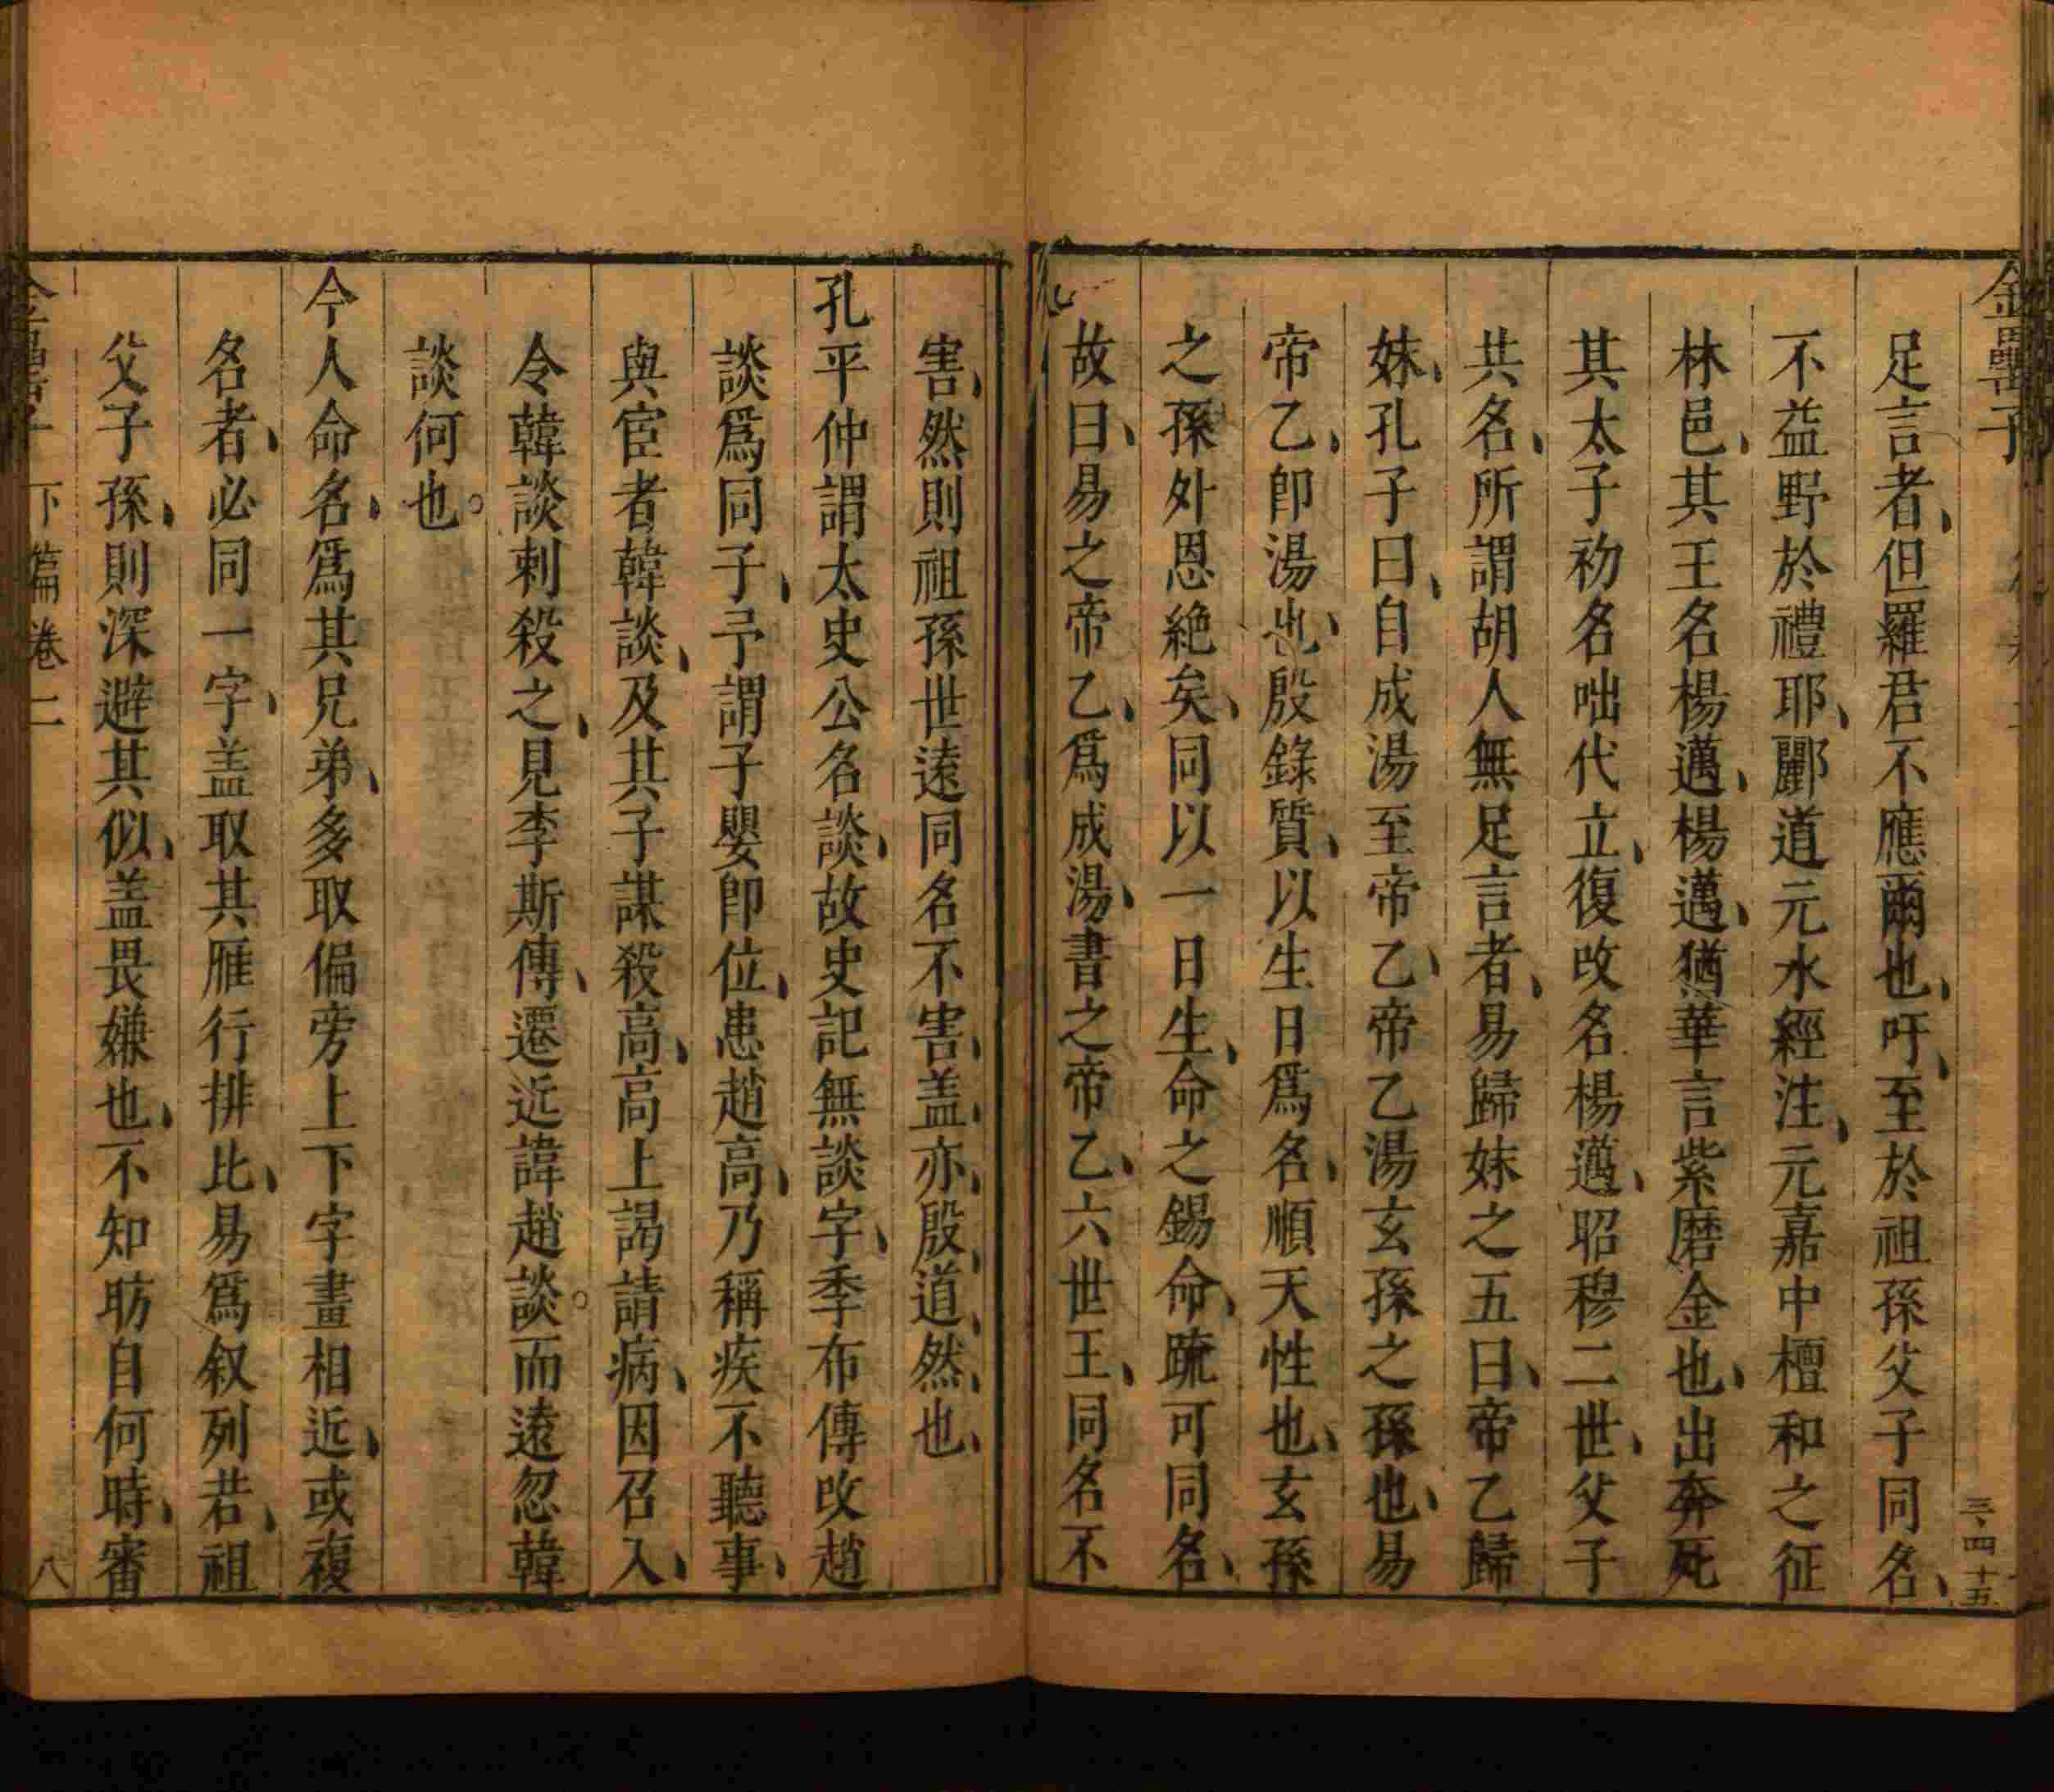 金罍子
三四十五
足言者但羅君不應爾也吁至於祖孫父子同名
不益野於禮耶酈道元水經注元嘉中檀和之征
林邑其王名楊邁楊邁猶華言紫磨金也出奔死
其太子初名咄代立復改名楊邁昭穆二世父子
共名所謂胡人無足言者易歸妹之五曰帝乙歸
妹孔子曰自成湯至帝乙帝乙湯玄孫之孫也易
帝乙即湯也殷錄質以生日爲名順天性也玄孫
之孫外恩絶矣同以一日生命之錫命疏可同名
故曰易之帝乙爲成湯書之帝乙六世王同名不
害然則祖孫世遠同名不害盖亦殷道然也
孔平仲謂太史公名談故史記無談字季布傳改趙
談爲同子予謂子嬰即位患趙高乃稱疾不聽事
與宦者韓談及其子謀殺高高上謁請病因召入
令韓談刺殺之見李斯傳遷近諱趙談而遠忽韓
談何也
今人命名爲其兄弟多取偏旁上下字畫相近或複
名者必同一字盖取其雁行排比易爲叙列若祖
父子孫則深避其似盖畏嫌也不知昉自何時審
金罍子 下篇卷二 八